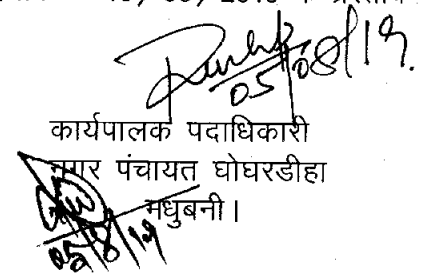 05/08/19.
कार्यपालक पदाधिकारी
नगर पंचायत घोघरडीहा
मधुबनी।
05/8/19